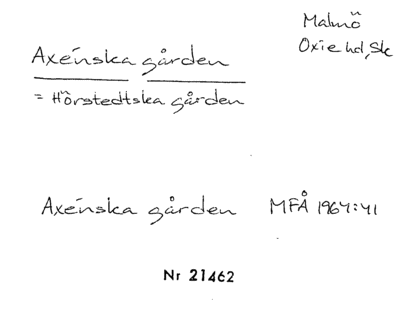 Malmö
Axénska gården
Oxie hd, Sk
= Hörstedtska gården
Axénska gården MFÅ 1964:41
Nr 21462